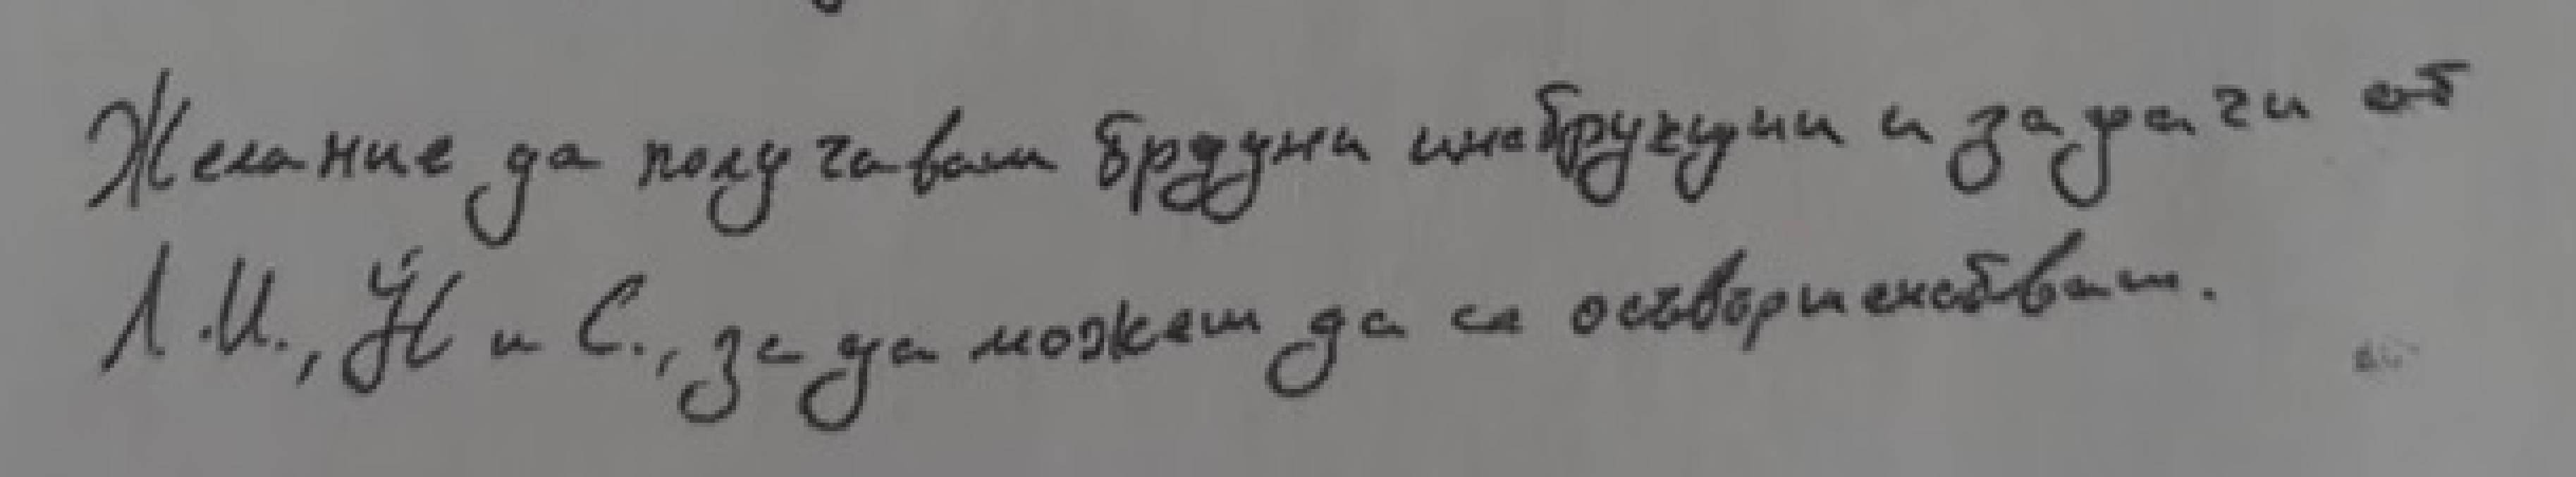 Желание да получавам трудни инструкции и задачи от
Л.И., Й и С., за да можеш да се осъвършенстваш.